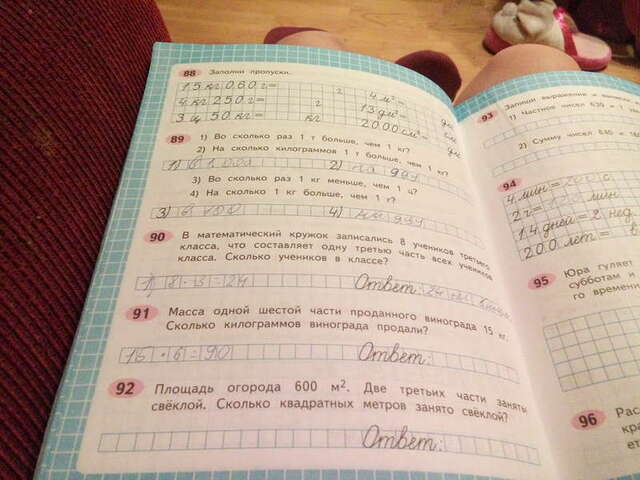 88 Заполни пропуски.
15 кг 060 г = г 4 м² = дм
4 кг 250 г = г 13 дм² = см
3 ц 50 кг = кг 2000 см² = дм
89 1) Во сколько раз 1 т больше, чем 1 кг?
2) На сколько килограммов 1 т больше, чем 1 кг?
1) в 1000 2) на 999
3) Во сколько раз 1 кг меньше, чем 1 ц?
4) На сколько 1 кг больше, чем 1 г?
3) в 100 4) на 999
90 В математический кружок записались 8 учеников третьего
класса, что составляет одну третью часть всех учеников
класса. Сколько учеников в классе?
1) 8 · 3 = 24 Ответ: 24
91 Масса одной шестой части проданного винограда 15 кг.
Сколько килограммов винограда продали?
15 · 6 = 90 Ответ:
92 Площадь огорода 600 м². Две третьих части заняты
свёклой. Сколько квадратных метров занято свёклой?
Ответ:
93 Запиши выражения и вычисли
1) Частное чисел 630 и
2) Сумму чисел 640 и
94
4 мин = с
2 г = мин
14 дней = 2 нед
200 лет = в
95 Юра гуляет
субботам и
го времени
96 Рас
кра
ет